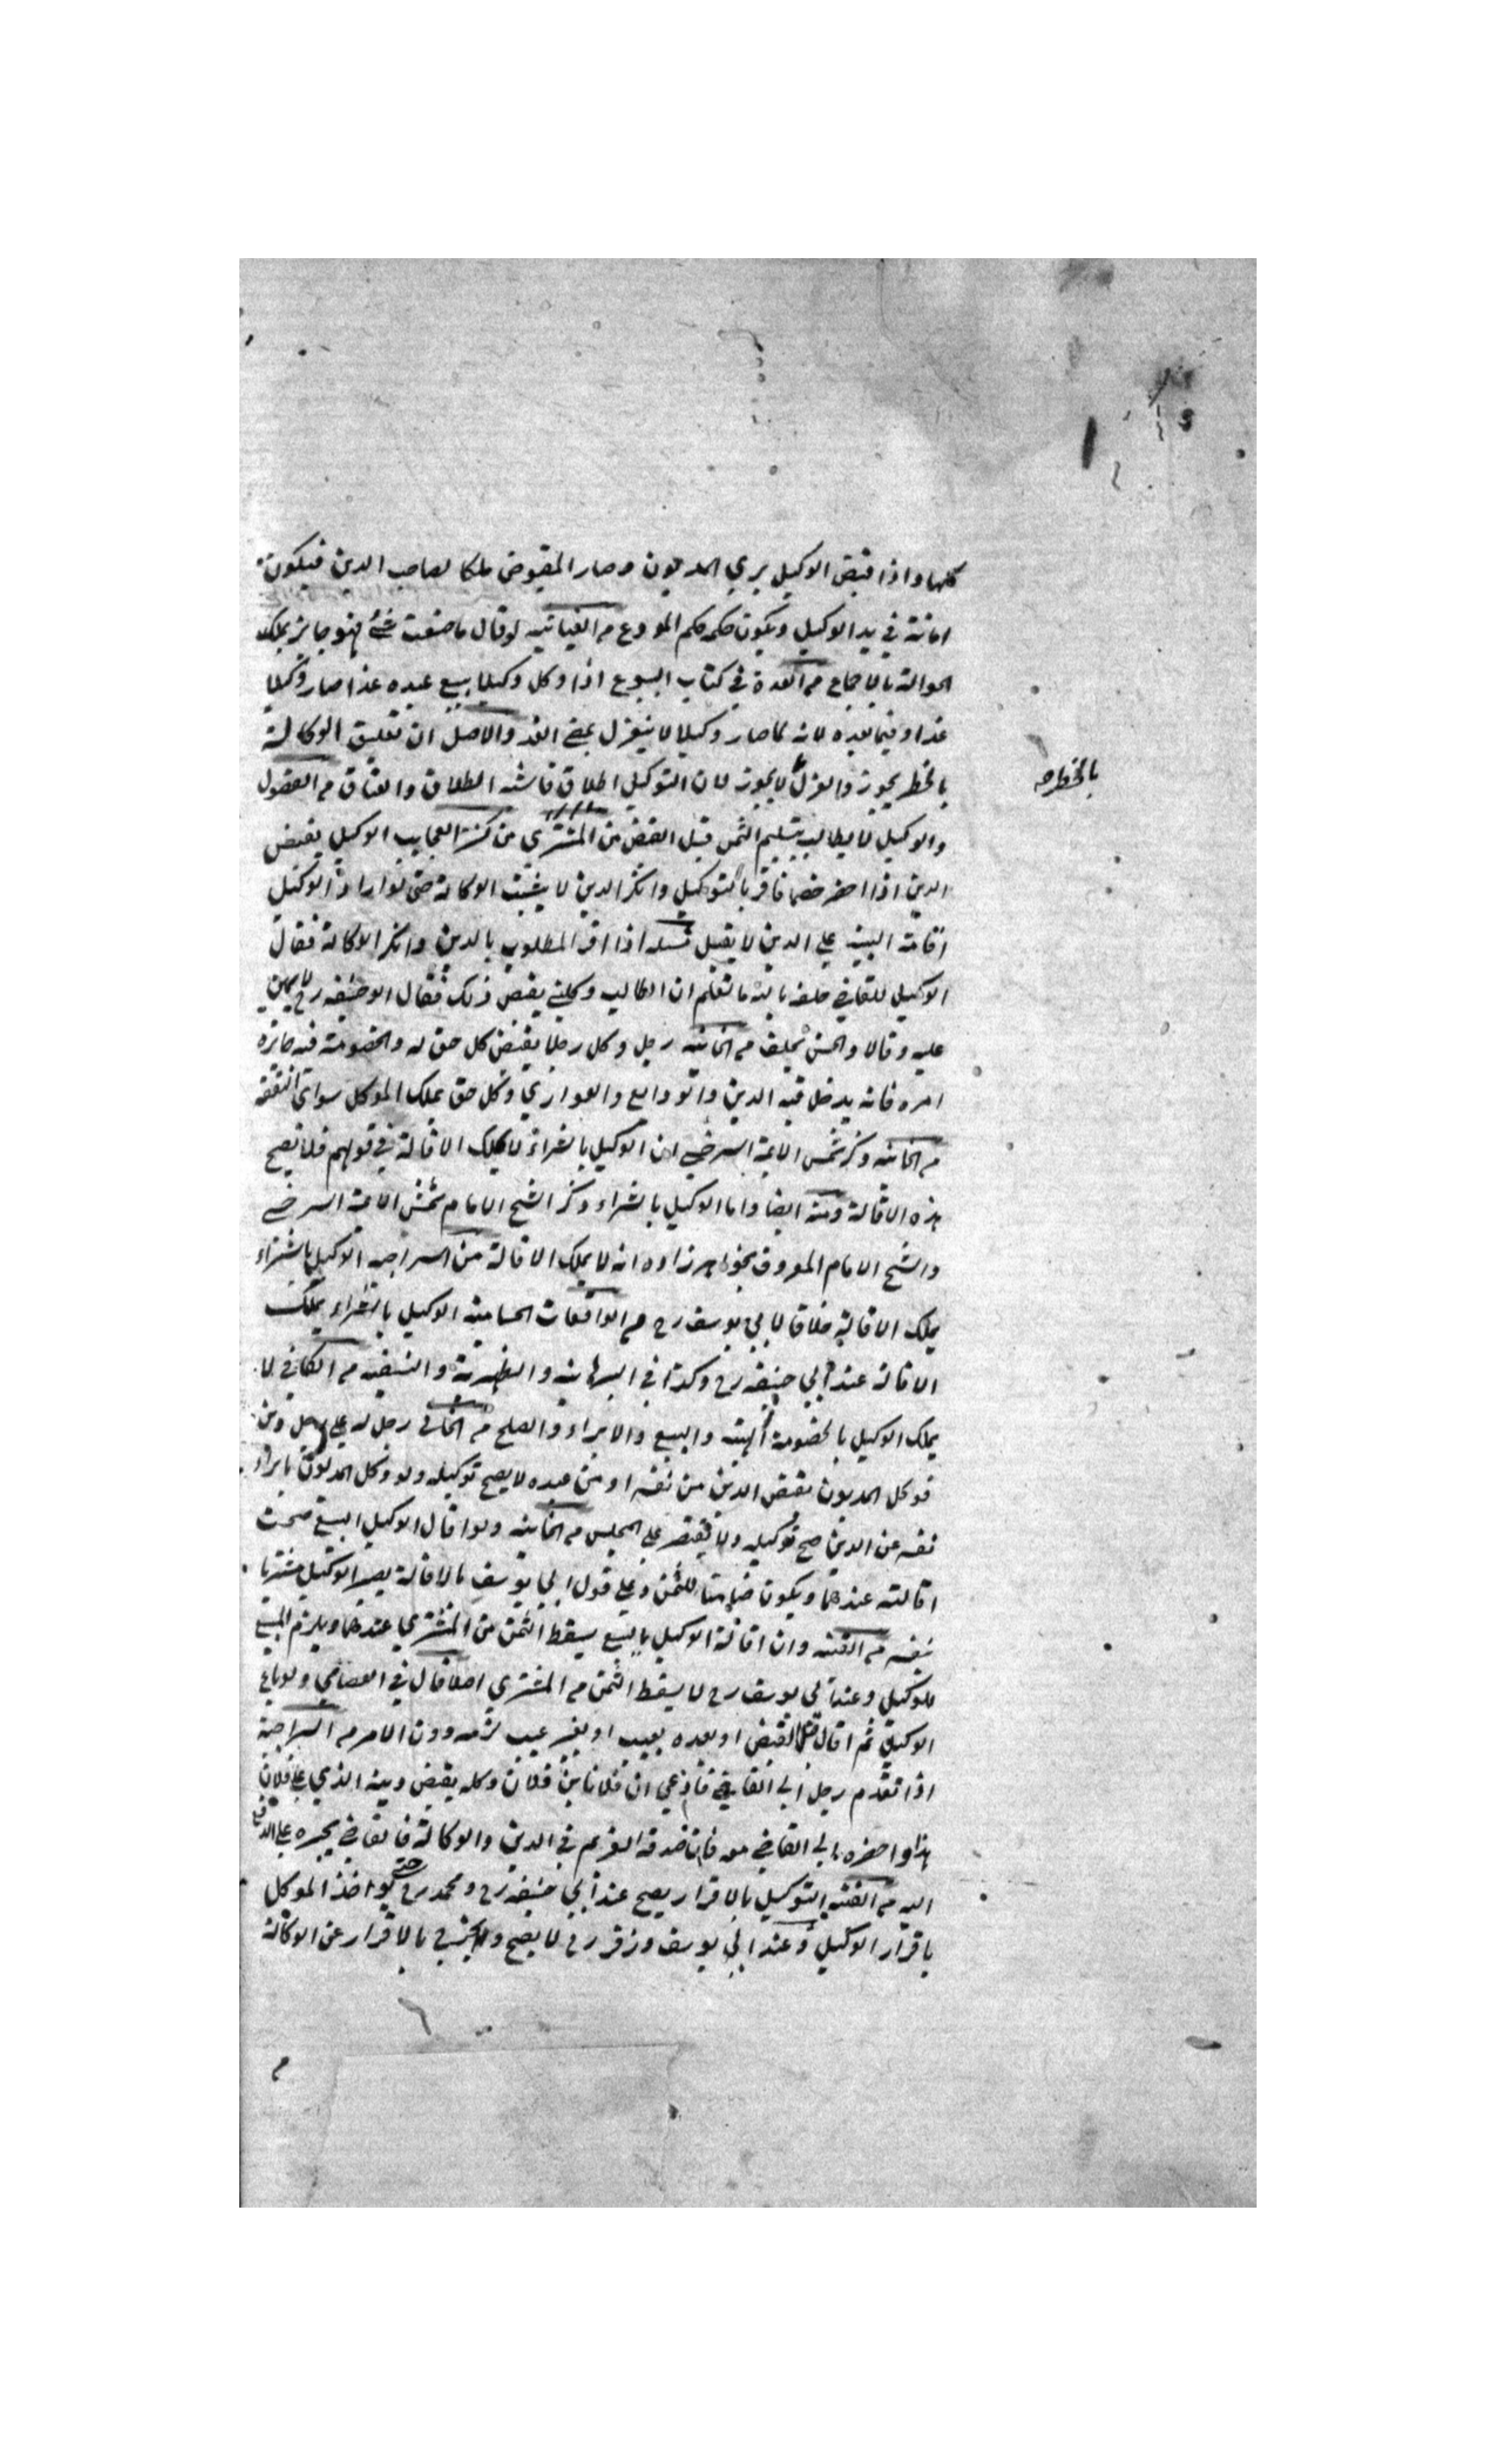 كلها واذا قبض الوكيل بري المديون وصار المقبوض ملكا لصاحب الدين فيكون
امانة في يد الوكيل ويكون حكمه حكم المودع من الغياثيه لو قال ما صنعت من شئ فهو جايز يملك
الحوالة بالاجماع من العدة في كتاب البيوع اذا وكل وكيلا ببيع عبده غدا صار وكيلا
غدا وفيما بعده لانه لما صار وكيلا لا ينعزل بمضي الغد والاصل ان تعليق الوكالة
بالخطر يجوز والعزل لا يجوز لان التوكيل اطلاق فاشبه الطلاق والعتاق من الفصول
بالخطر صح
والوكيل لا يطالب بتسليم الثمن قبل القبض من المشتري من كنز العجايب الوكيل بقبض
الدين اذا احضر خصما فاقر بالتوكيل وانكر الدين لا يثبت الوكالة حتى لو اراد الوكيل
اقامة البينه علي الدين لا يقبل مسله اذا اقر المطلوب بالدين وانكر الوكالة فقال
الوكيل للقاضي حلفه بالله ما تعلم ان الطالب وكلني بقبض ذلك فقال ابو حنيفه رح لا يمين
عليه وقالا والحسن يحلف من الخانيه رجل وكل رجلا بقبض كل حق له والخصومة فيه جايزه
امره فانه يدخل فيه الدين والودايع والعواري وكل حق يملك الموكل سواي النفقه
من الخانيه وذكر شمس الايمة السرخسي ان الوكيل بالشراء لا يملك الاقالة في قولهم فلا تصح
هذه الاقالة ومنه ايضا واما الوكيل بالشراء ذكر الشيخ الامام شمس الايمة السرخسي
والشيخ الامام المعروف بخواهر زاده انه لا يملك الاقالة من السراجيه الوكيل بالشراء
يملك الاقالة خلافا لابي يوسف رح من الواقعات الحسامية الوكيل بالشراء يملك
الاقالة عند ابي حنيفه رح وكذا في البرهانيه والظهيرية والنسفيه من الكافي لا
يملك الوكيل بالخصومة الهبة والبيع والابراء والصلح من الخاني رجل له علي رجل دين
فوكل المديون بقبض الدين من نفسه او من عبده لا يصح توكيله ولو وكل المديون بابراء
نفسه عن الدين صح توكيله ولا يقتصر علي المجلس من الخانيه ولو اقال الوكيل البيع صحت
اقالته عندهما ويكون ضامنا للثمن وعلي قول ابي يوسف بالاقالة يصير الوكيل مشتريا
لنفسه من القنيه وان اقالة الوكيل بالبيع يسقط الثمن من المشتري عندهما ويلزم المبيع
للوكيل وعند ابي يوسف رح لا يسقط الثمن من المشتري اصلا قال في العصامي ولو باع
الوكيل ثم اقال قبل القبض او بعده بعيب او بغير عيب لزمه دون الامر من السراجية
اذا تقدم رجل الي القاضي فادعي ان فلانا بن فلان وكله بقبض دينه الذي علي فلان
هذا واحضره الي القاضي معه فان صدقه الغريم في الدين والوكالة فالقاضي يجبره علي الدفع
اليه من القنيه التوكيل بالاقرار يصح عند ابي حنيفه رح ومحمد رح حتي يواخذ الموكل
باقرار الوكيل وعند ابي يوسف وزفر رح لا يصح بالاقرار عن الوكالة